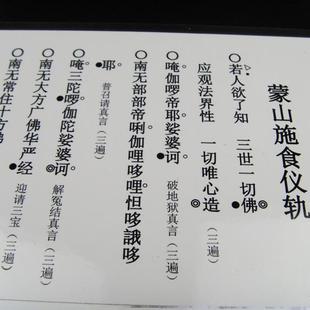 蒙山施食仪轨
○若人欲了知 三世一切佛◎
应观法界性 一切唯心造（三遍）
○唵伽啰帝耶娑婆诃。 破地狱真言（三遍）
○南无部部帝唎伽哩哆哩怛哆誐哆
耶。 普召请真言（三遍）
○唵三陀啰伽陀娑婆诃。 解冤结真言（三遍）
○南无大方广佛华严经◎
○南无常住十方佛 迎请三宝（三遍）